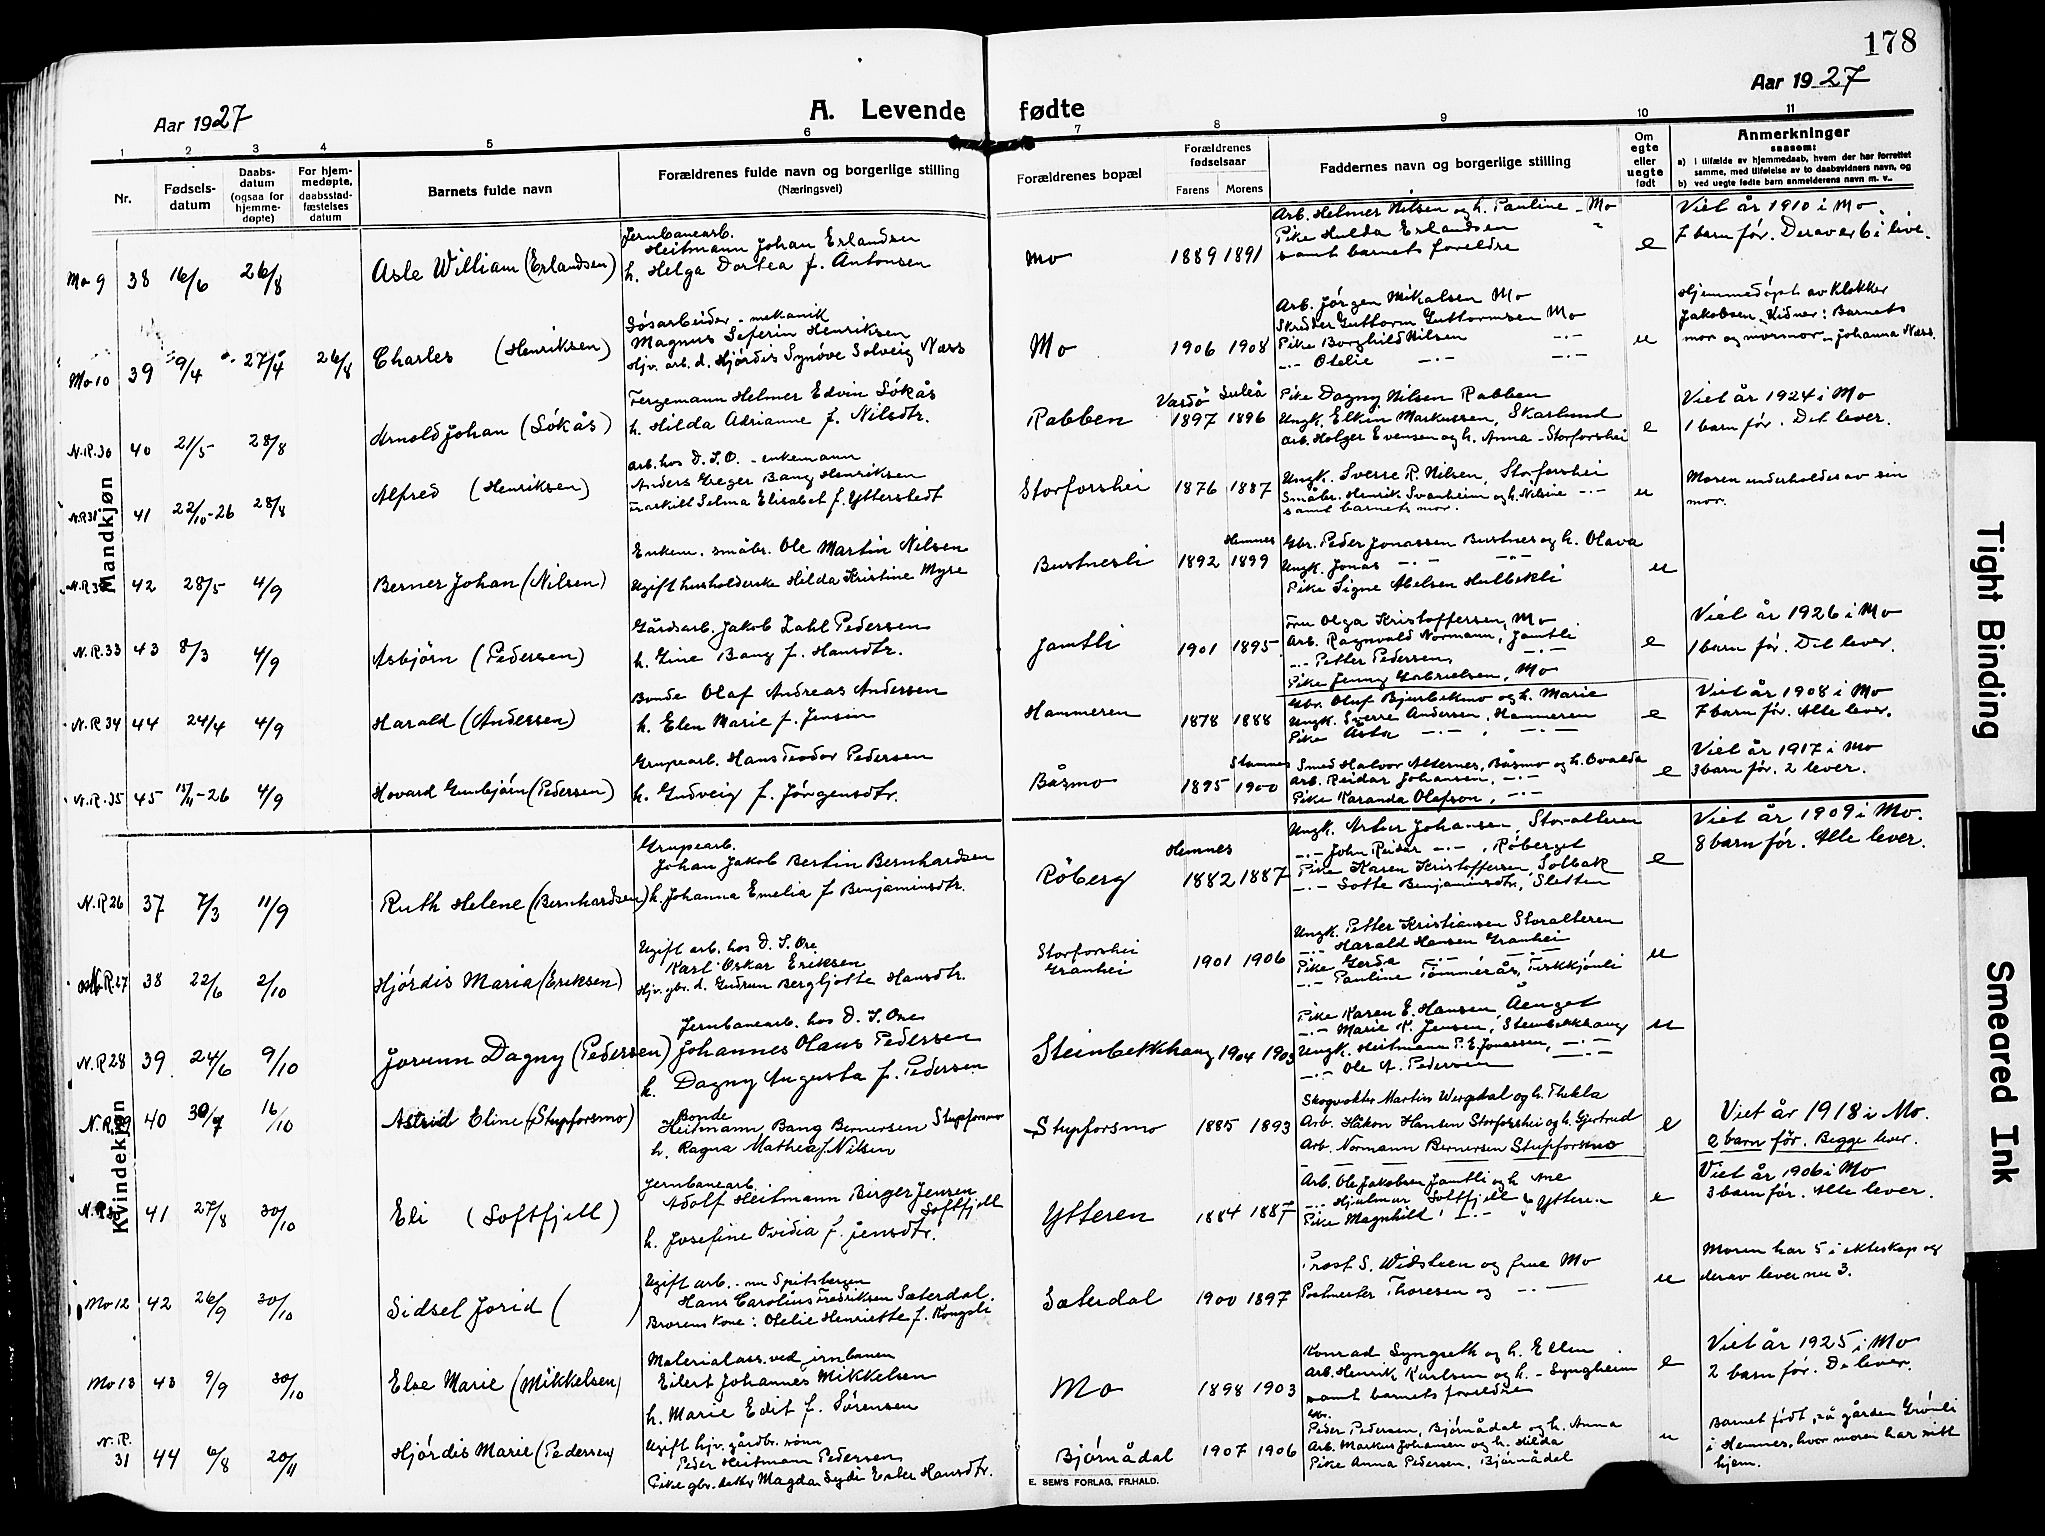 178
Aar 1927
A. Levende fødte
Aar 1927
1 2 3 4 5 6 7 8 9 10 11
Nr.
Fødselsdatum
Daabsdatum (ogsaa for hjemmedøpte)
For hjemmedøpte, daabsstadfæstelses datum
Barnets fulde navn
Forældrenes fulde navn og borgerlige stilling
(Næringsvei)
Forældrenes bopæl
Forældrenes fødselsaar
Farens Morens
Faddernes navn og borgerlige stilling
Om egte eller uegte født
Anmerkninger
saasom:
a) i tilfælde av hjemmedaab, hvem der har forrettet samme, med tilføielse av to daabsvidners navn, og
b) ved uegte fødte barn anmelderens navn m. v.
Mandkjøn
Mo 9 38 16/6 26/8 Asle William (Erlandsen)
Jernbanearb.
Heitmann Johan Erlandsen
h. Helga Dortea f. Antonsen
Mo 1889 1891
Arb. Helmer Nilsen og h. Pauline - Mo
Pike Hulda Erlandsen "
samt barnets foreldre
e
Viet år 1910 i Mo
7 barn før. Derav er 6 i live.
Mo 10 39 9/4 27/4 26/8 Charles (Henriksen)
Løsarbeider - mekanik
Magnus Seferin Henriksen
Hjv. arb. d. Hjørdis Synøve Solveig Næss
Mo 1906 1908
Arb. Jørgen Mikalsen Mo
Skræder Guttorm Guttormsen Mo
Pike Borghild Nilsen -.-
-.- Otelie -.- -.-
u
Hjemmedøpt av Klokker
Jakobsen. Vidner: Barnets
mor og mormor Johanna Næss.
N.R. 30 40 21/5 28/8 Arnold Johan (Søkås)
Fergemann Helmer Edvin Søkås
h. Hilda Adrianne f. Nilsdtr.
Rabben Vardø 1897 Luleå 1896
Pike Dagny Nilsen Rabben
Ungk. Elkin Markussen, Skarlund
Arb. Holger Evensen og h. Anna - Storforshei
e
Viet år 1924 i Mo
1 barn før. Det lever.
N.R 31 41 22/10-26 28/8 Alfred (Henriksen)
Arb. hos D. S. O. - enkemann
Anders Greger Bang Henriksen
Fraskilt Selma Elisabet f. Ytterstedt
Storforshei 1876 1887
Ungk. Sverre R. Nilsen, Storforshei
Småbr. Henrik Svanheim og h. Nilsine -.-
samt barnets mor.
u
Moren underholdes av sin
mor.
42 28/5 4/9 Berner Johan (Nilsen)
Enkem. småbr. Ole Martin Nilsen
Ugift husholderske Hilda Kristine Myre
Bustnesli 1892 Hemnes 1899
Gbr. Peder Jonassen Bustnes og h. Olava
Ungk. Jonas -.- -.-
Pike Signe Abelsen Hulbekli
u
N.R. 33 43 8/3 4/9 Asbjørn (Pedersen)
Gårdsarb. Jakob Zahl Pedersen
h. Gine Bang f. Hansdtr.
Jamtli 1901 1895
Fru Olga Kristoffersen, Mo
Arb. Ragnvald Normann, Jamtli
-.- Petter Pedersen, -.-
Pike Jenny Gabrielsen, Mo
e
Viet år 1926 i Mo
1 barn før. Det lever.
N.R. 34 44 24/4 4/9 Harald (Andersen)
Bonde Olaf Andreas Andersen
h. Elen Marie f. Jensin
Hammeren 1878 1888
Gbr. Oluf Bjerbekmo og h. Marie
Ungk. Sverre Andersen, Hammeren
Pike Åsta -.- , -.-
e
Viet år 1908 i Mo
7 barn før. Alle lever.
N.R. 35 45 15/11-26 4/9 Hovard Gunbjørn (Pedersen)
Grupearb. Hans Teodor Pedersen
h. Gudveig f. Jørgensdtr.
Båsmo 1895 Stamnes 1900
Smed Halvor Alternes, Båsmo og h. Ovalda
Arb. Reidar Johansen, -.-
Pike Karanda Olafson, -.-
e
Viet år 1917 i Mo
3 barn før. 2 lever.
Kvindekjøn
N.R 26 37 7/3 11/9 Ruth Helene (Bernhardsen)
Grupearb.
Johan Jakob Bertin Bernhardsen
h. Johanna Emelia f. Benjaminsdtr.
Røberg Hemnes 1882 1887
Ungk. Artur Johansen, Storalteren
-.- John Reidar -.- , Røberget
Pike Karen Kristoffersen, Solbak
-.- Lotte Benjaminsdtr, Sletten
e
Viet år 1909 i Mo.
8 barn før. Alle lever.
N.R. 27 38 22/6 2/10 Hjørdis Maria (Eriksen)
Ugift arb. hos D. S. Ore
Karl Oskar Eriksen
Hjv. gbr. d. Gudrun Bergljotte Hansdtr.
Storforshei
Granhei 1901 1906
Ungk. Petter Kristiansen Storalteren
-.- Harald Hansen Granhei
Pike Gerda -.- -.-
-.- Pauline Tømmerås,
u
N.R 28 39 24/6 9/10 Jorunn Dagny (Pedersen)
Jernbanearb. hos D. S. Ore
Johannes Olaus Pedersen
h. Dagny Augusta f. Pedersen
Steinbekkhaug 1904 1903
Pike Karen E. Hansen Åenget
-.- Marie K. Jensen, Steinbekkhaug
Ungk. Heitmann P. E. Jonassen, -.-
-.- Ole A. Pedersen -.-
u
N.R. 29 40 30/7 16/10 Astrid Eline (Stupforsmo)
Bonde
Heitmann Bang Bernersen Stupforsmo
h. Ragna Mathea f. Nilsen
Stupforsmo 1885 1893
Skogvokter Martin Wergdal og h. Thekla
Arb. Håkon Hansen Storforshei og h. Gjertrud
Arb. Normann Bernersen Stupforsmo
e
Viet år 1918 i Mo.
2 barn før. Begge lever.
41 27/8 30/10 Eli (Softfjell)
Jernbanearb.
Adolf Heitmann Birger Jensen
Softfjell
h. Josefine Ovidia f. Jensdtr.
Ytteren 1884 1887
Arb. Ole Jakobsen Jamtli og h. Ane
-.- Hjalmar Softfjell Ytteren
Pike Magnhild -.- -.-
e
Viet år 1906 i Mo
3 barn før. Alle lever.
Mo 12 42 26/9 30/10 Sidsel Jorid ( )
Ugift arb. - nu Spitsbergen
Hans Carolius Fredriksen Sæterdal.
Brorens kone: Otelie Henriette f. Kongsli
Sæterdal 1900 1897
Prost S. Widsteen og frue Mo
Postmester Thoresen og -.-
u
Moren har 5 i ekteskap og
derav lever nu 3.
Mo 13 43 9/9 30/10 Else Marie (Mikkelsen)
Materialass. ved jernbanen
Eilert Johannes Mikkelsen
h. Marie Edit f. Sørensen
Mo 1898 1903
Konrad Syngseth og h. Ellen
Arb. Henrik Karlsen og h. - Syngheim
samt barnets foreldre
e
Viet år 1925 i Mo
2 barn før. De lever.
N.R. 31 44 6/8 20/11 Hjørdis Marie (Pedersen)
Ugift hjv. gårdbr. sønn
Peder Heitmann Pedersen
Pike gbr. datter Magda Lydi Ester Hansdtr.
Bjørnådal 1907 1906
Gbr. Peder Pedersen, Bjørnådal og h. Anna
Arb. Markus Johansen og h. Hilda
Pike Anna Pedersen, Bjørnådal
u
Barnet født på gården Grønli
i Hemnes, hvor moren har sitt
hjem.
E. SEM'S FORLAG, FR.HALD.
Tight Binding
Smeared Ink